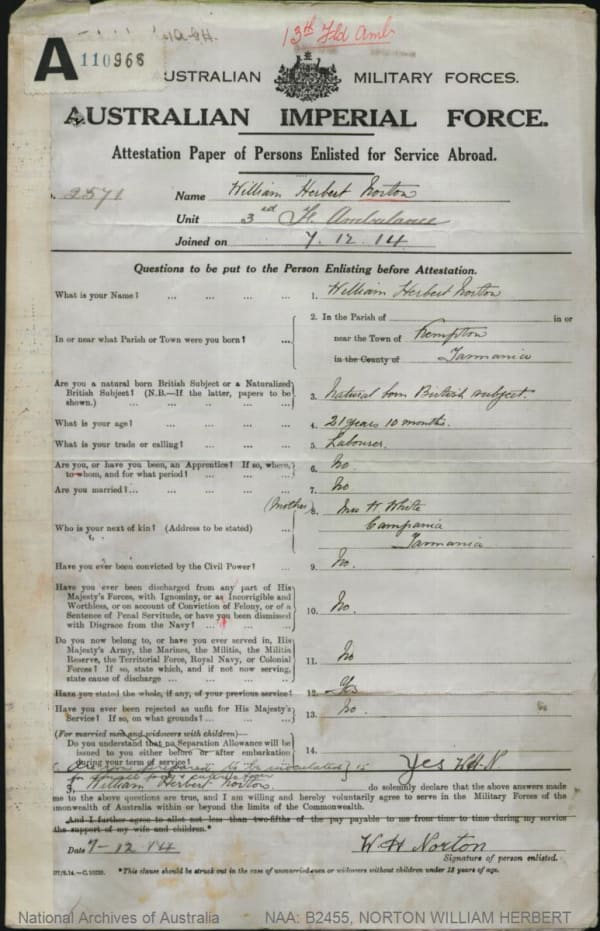 13th Fld Amb
A 110968
AUSTRALIAN MILITARY FORCES.
AUSTRALIAN IMPERIAL FORCE.
Attestation Paper of Persons Enlisted for Service Abroad.
2571
Name William Herbert Norton
Unit 3rd F. Ambulance
Joined on 7. 12. 14
Questions to be put to the Person Enlisting before Attestation.
What is your Name? ... ... ... ... 1. William Herbert Norton
2. In the Parish of in or
In or near what Parish or Town were you born? ... near the Town of Kempton
in the County of Tasmania
Are you a natural born British Subject or a Naturalized
British Subject? (N.B.—If the latter, papers to be
shown.) ... ... ... ... 3. Natural born British subject.
What is your age? ... ... ... ... 4. 21 years 10 months.
What is your trade or calling? ... ... ... 5. Labourer.
Are you, or have you been, an Apprentice? If so, where,
to whom, and for what period? ... ... ... 6. No
Are you married?... ... ... ... 7. No
(Mother) 8. Mrs H. White
Who is your next of kin? (Address to be stated) ... Campania
Tasmania
Have you ever been convicted by the Civil Power? ... 9. No.
Have you ever been discharged from any part of His
Majesty's Forces, with Ignominy, or as Incorrigible and
Worthless, or on account of Conviction of Felony, or of a
Sentence of Penal Servitude, or have you been dismissed
with Disgrace from the Navy? ... ... ... 10. No.
Do you now belong to, or have you ever served in, His
Majesty's Army, the Marines, the Militia, the Militia
Reserve, the Territorial Force, Royal Navy, or Colonial
Forces? If so, state which, and if not now serving,
state cause of discharge ... ... ... 11. No
Have you stated the whole, if any, of your previous service? 12. Yes
Have you ever been rejected as unfit for His Majesty's
Service? If so, on what grounds? ... ... 13. No.
(For married men and widowers with children)—
Do you understand that no Separation Allowance will be
issued to you either before or after embarkation
during your term of service? 14.
prepared to be inoculated 15 Yes W.H.N
for small pox &
William Herbert Norton. do solemnly declare that the above answers made
me to the above questions are true, and I am willing and hereby voluntarily agree to serve in the Military Forces of the
monwealth of Australia within or beyond the limits of the Commonwealth.
And I further agree to allot not less than two-fifths of the pay payable to me from time to time during my service
the support of my wife and children.*
Date 7-12-14 W H Norton
Signature of person enlisted.
*This clause should be struck out in the case of unmarried men or widowers without children under 18 years of age.
National Archives of Australia NAA: B2455, NORTON WILLIAM HERBERT